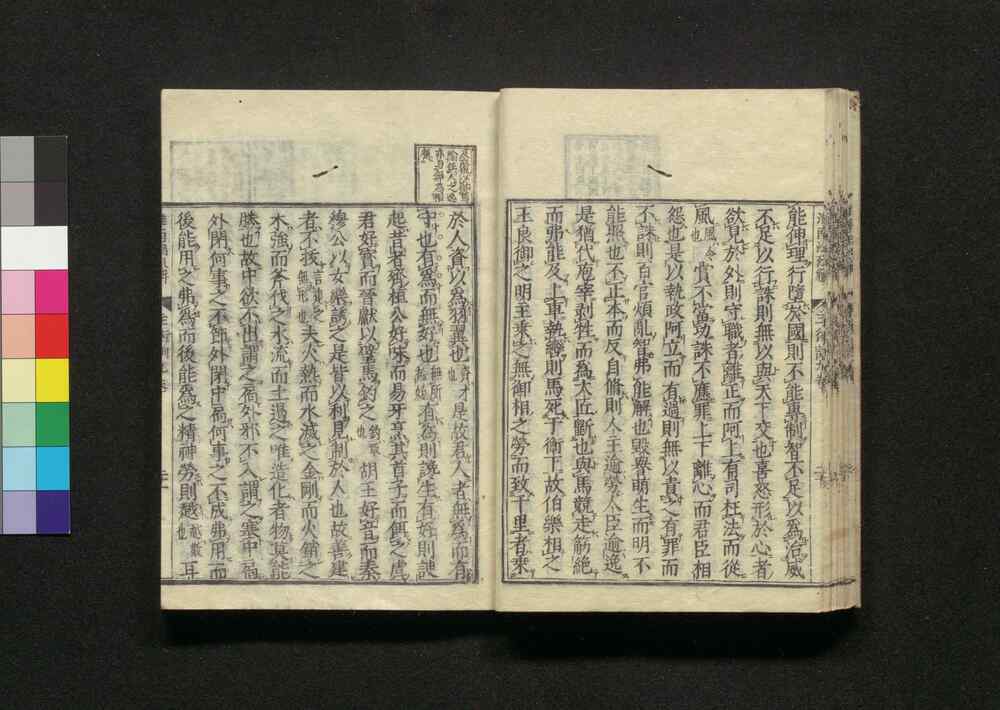 能伸理行墮於國則不能專制智不足以為治威
不足以行誅則無以與天下交也喜怒形於心者
欲見於外則守職者離正而阿上有司枉法而從
風風令也賞不當功誅不應罪上下離心而君臣相
怨也是以執政阿主而有過則無以責之有罪而
不誅則百官煩亂智弗能解也毀譽萌生而明不
能照也不正本而反自脩則人主逾勞人臣逾逸
是猶代庖宰剝牲而為大匠斲也與馬競走筋絕
而弗能及上車執轡則馬死于衡下故伯樂相之
王良御之明主乘之無御相之勞而致千里者乘
於人資以為羽翼也資才也是故君人者無為而有
守也有為而無好也無所私好有為則讒生有好則諛
起昔者齊桓公好味而易牙烹其首子而餌之虞
君好寶而晉獻以璧馬釣之釣取也胡王好音而秦
穆公以女樂誘之是皆以利見制於人也故善建
者不拔言建之無形也夫火熱而水滅之金剛而火銷之
木強而斧伐之水流而土遏之唯造化者物莫能
勝也故中欲不出謂之扃外邪不入謂之塞中扃
外閉何事之不節外閉中扃何事之不成弗用而
後能用之弗為而後能為之精神勞則越越散也耳